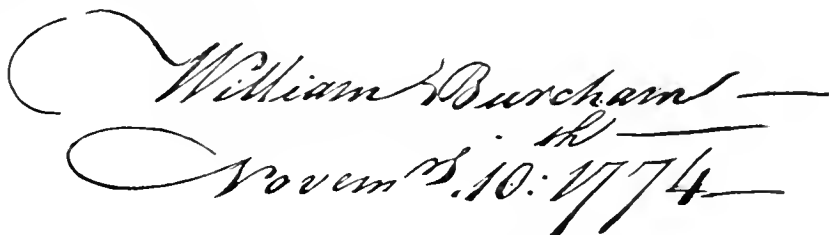 William Burcham
Novem^r. 10:^th 1774